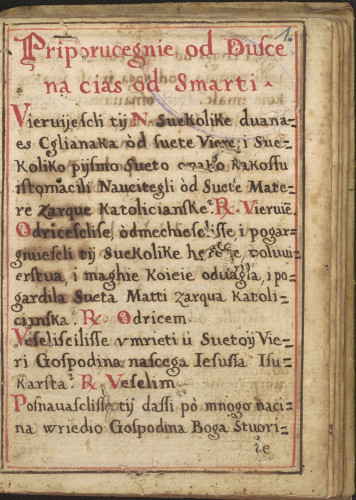 1.
Priporucegnie od Dusce
na cias od Smarti.
Vieruijescli tij N. Suekolike duana=
es Cglianaka òd suete Viere, i Sue=
koliko pijsmo Sueto onako kakossu
istomacili Naucitegli òd Suete Mate=
re Zarque Katolicianske? R. Vieruiē.
Odricesclise, òdmechiesclisse, i pogar=
gniuiescli tij Suekolike
erstua, i maghie koieie oduagla, i po=
gardila Sueta Matti Zarqua Katoli=
cijnska. R. Odricem.
Veselisclilisse umrieti ù Suetoij Vie=
ri Gospodina nascega Iesussa Isu=
karsta? R. Veselim.
Posnauasclisse tij dassi pò mnogo naci=
na wriedio Gospodina Boga Stuori=
te